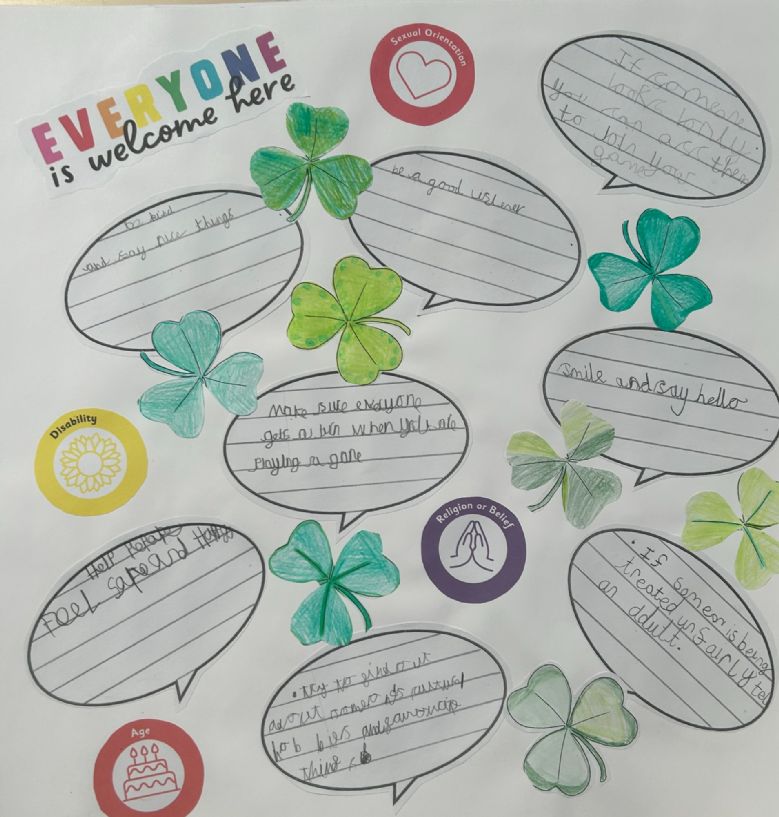 EVERYONE
is welcome here
Sexual Orientation
If someon
looks lonly.
You can acc them
to Join your
games
be a good listner
be kind
and say nice things
smile and say hello
Make sure everyone
gets a turn when you are
Playing a game
Disability
Religion or Belief
Help
Feel safe and
• If someon is being
treated unfairly tel
an adult.
• try to find out
about
hob bies and favourite
things
Age